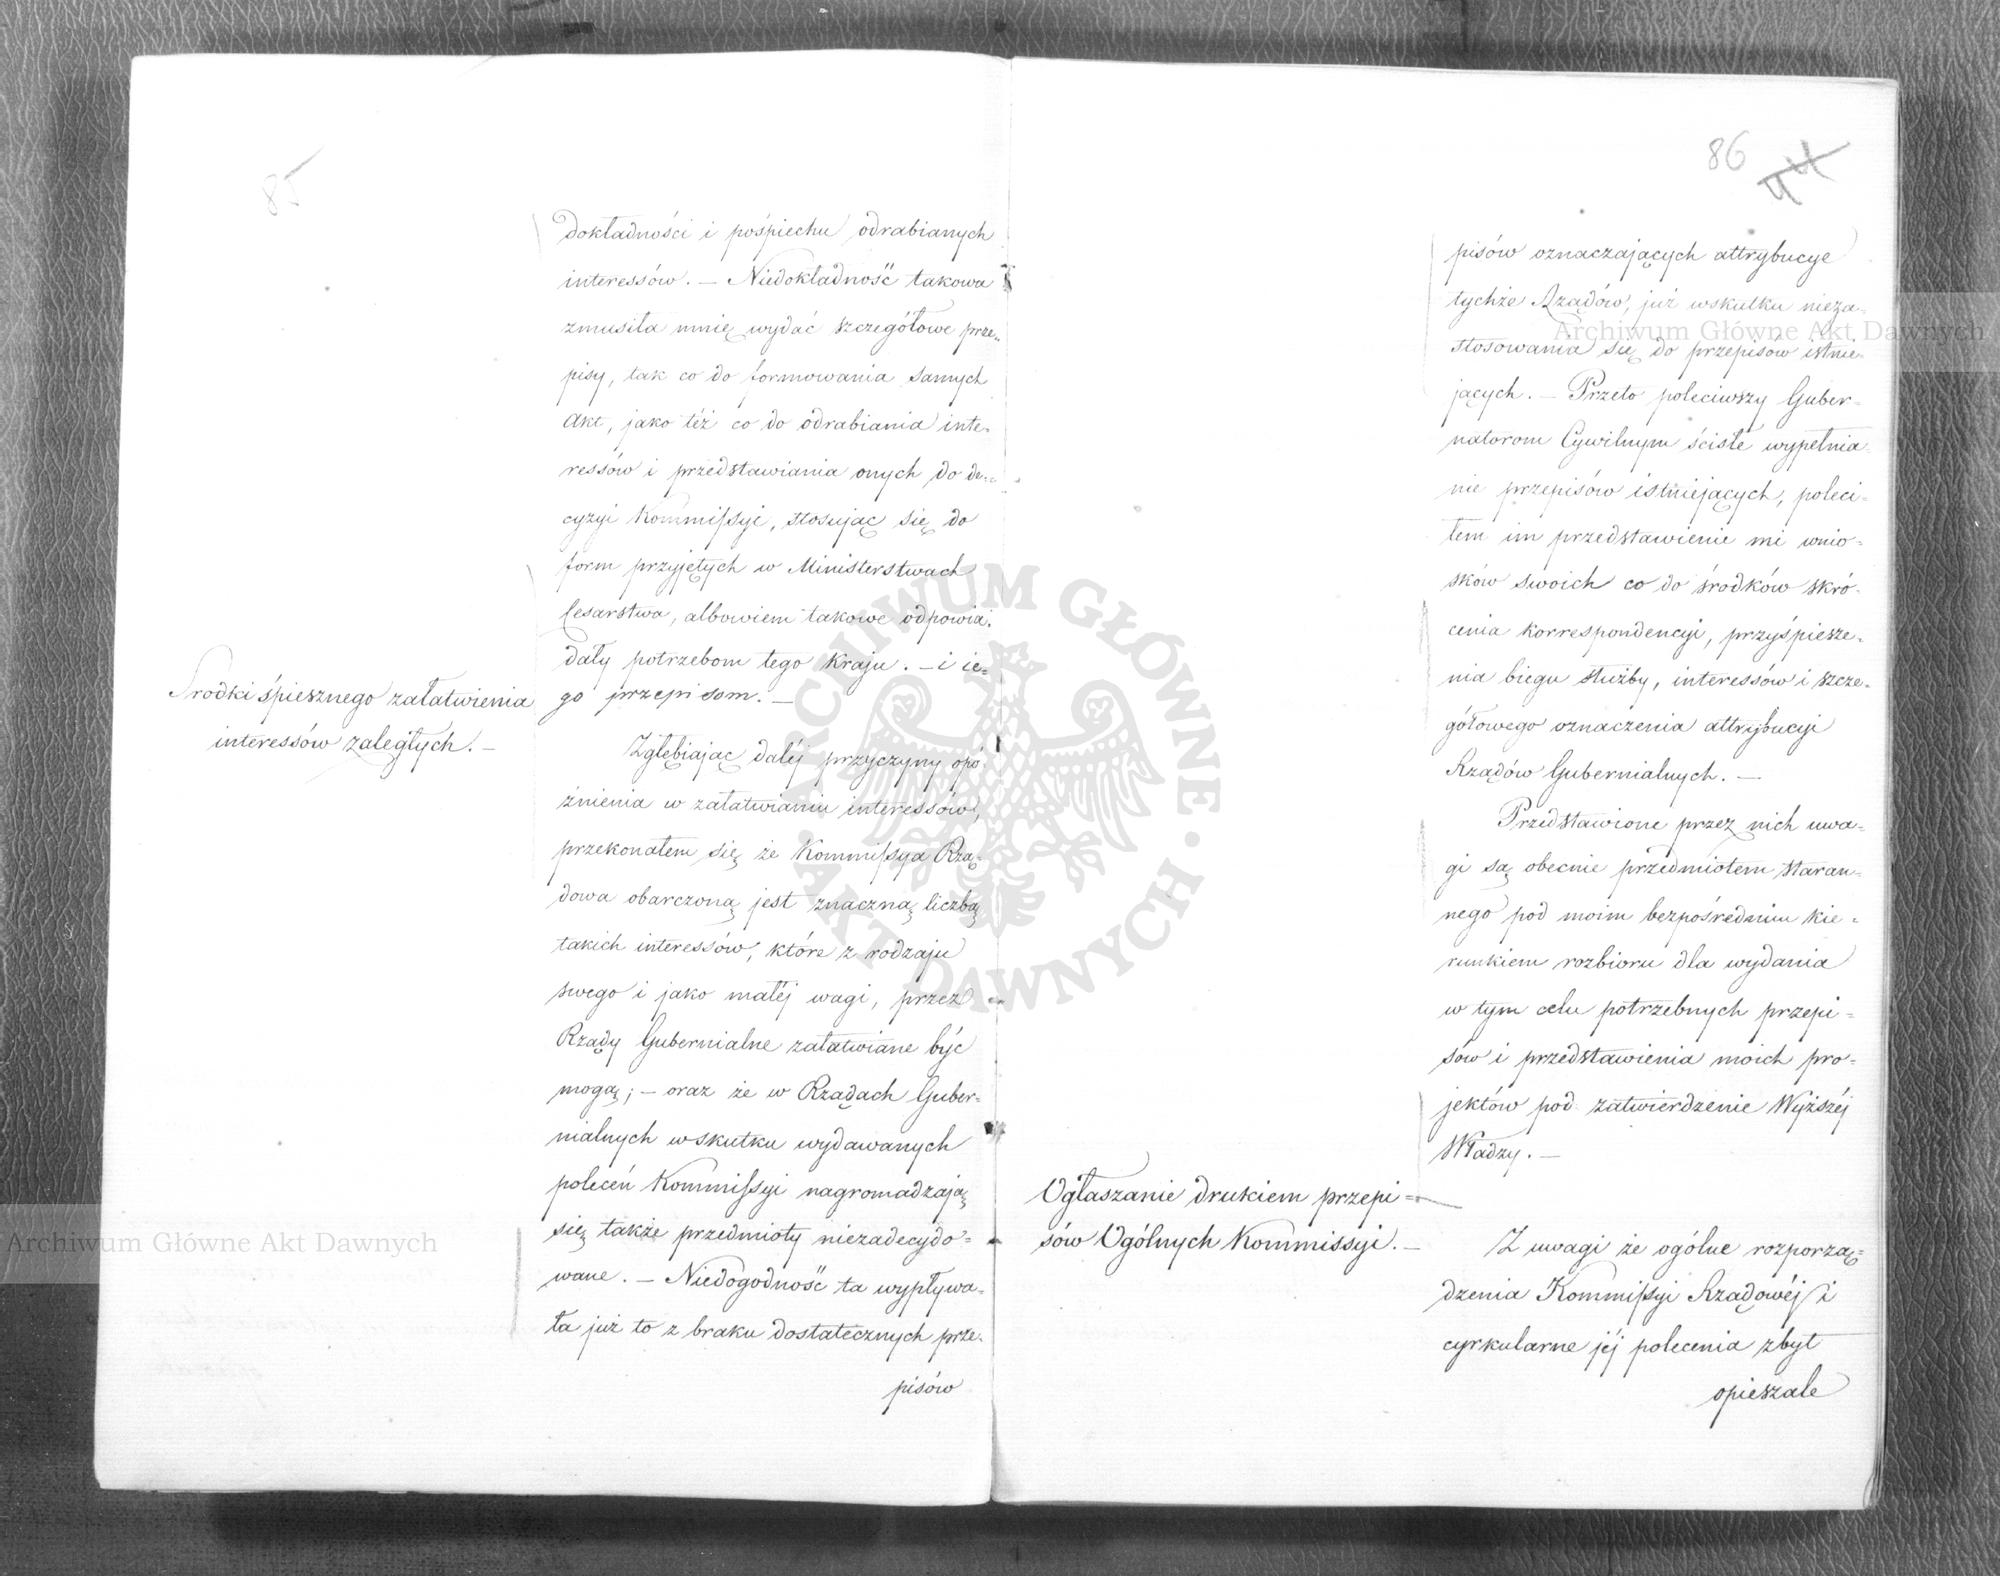 85
dokładności i pośpiechu odrabianych
interessów. — Niedokładność takowa
zmusiła mnię wydać szczegółowe prze-
pisy, tak co do formowania samych
Akt, jako téż co do odrabiania inte-
ressów i przedstawiania onych do de-
cyzyi Kommissyi, stosując się do
form przyjętych w Ministerstwach
Cesarstwa, albowiem takowe odpowia-
dały potrzebom tego Kraju. — i ie-
go przepisom. —
Srodki śpiesznego załatwienia
interessów zaległych. —
Zgłębiając daléj przyczyny opó-
źnienia w załatwianiu interessów,
przekonałem się że Kommissya Rzą-
dowa obarczoną jest znaczną liczbą
takich interessów, które z rodzaju
swego i jako małéj wagi, przez
Rządy Gubernialne załatwiane być
mogą; — oraz że w Rządach Guber-
nialnych wskutku wydawanych
poleceń Kommissyi nagromadzają
się także przedmioty niezadecydo-
wane. — Niedogodność ta wypływa-
ła już to z braku dostatecznych prze-
pisów
86
44
pisów oznaczających attrybucye
tychże Rządów, już wskutku nieza-
stosowania się do przepisów istnie-
jących. — Przeto poleciwszy Guber-
natorom Cywilnym ściśłe wypełnia-
nie przepisów istniejących, poleci-
łem im przedstawienie mi wnio-
sków swoich co do środków skró-
cenia korrespondencyi, przyśpiesze-
nia biegu służby, interessów i szcze-
gółowego oznaczenia attrybucyi
Rządów Gubernialnych. —
Przedstawione przez nich uwa-
gi są obecnie przedmiotem staran-
nego pod moim bezpośredniu kie-
runkiem rozbioru dla wydania
w tym celu potrzebnych przepi-
sów i przedstawienia moich pro-
jektów pod zatwierdzenie Wyższéj
Władzy. —
Ogłaszanie drukiem przepi-
sów Ogólnych Kommissyi. —
Z uwagi że ogólne rozporzą-
dzenia Kommissyi Rządowéj i
cyrkularne jéj polecenia zbyt
opieszale
Archiwum Główne Akt Dawnych
Archiwum Główne Akt Dawnych
ARCHIWUM GŁÓWNE · AKT DAWNYCH ·